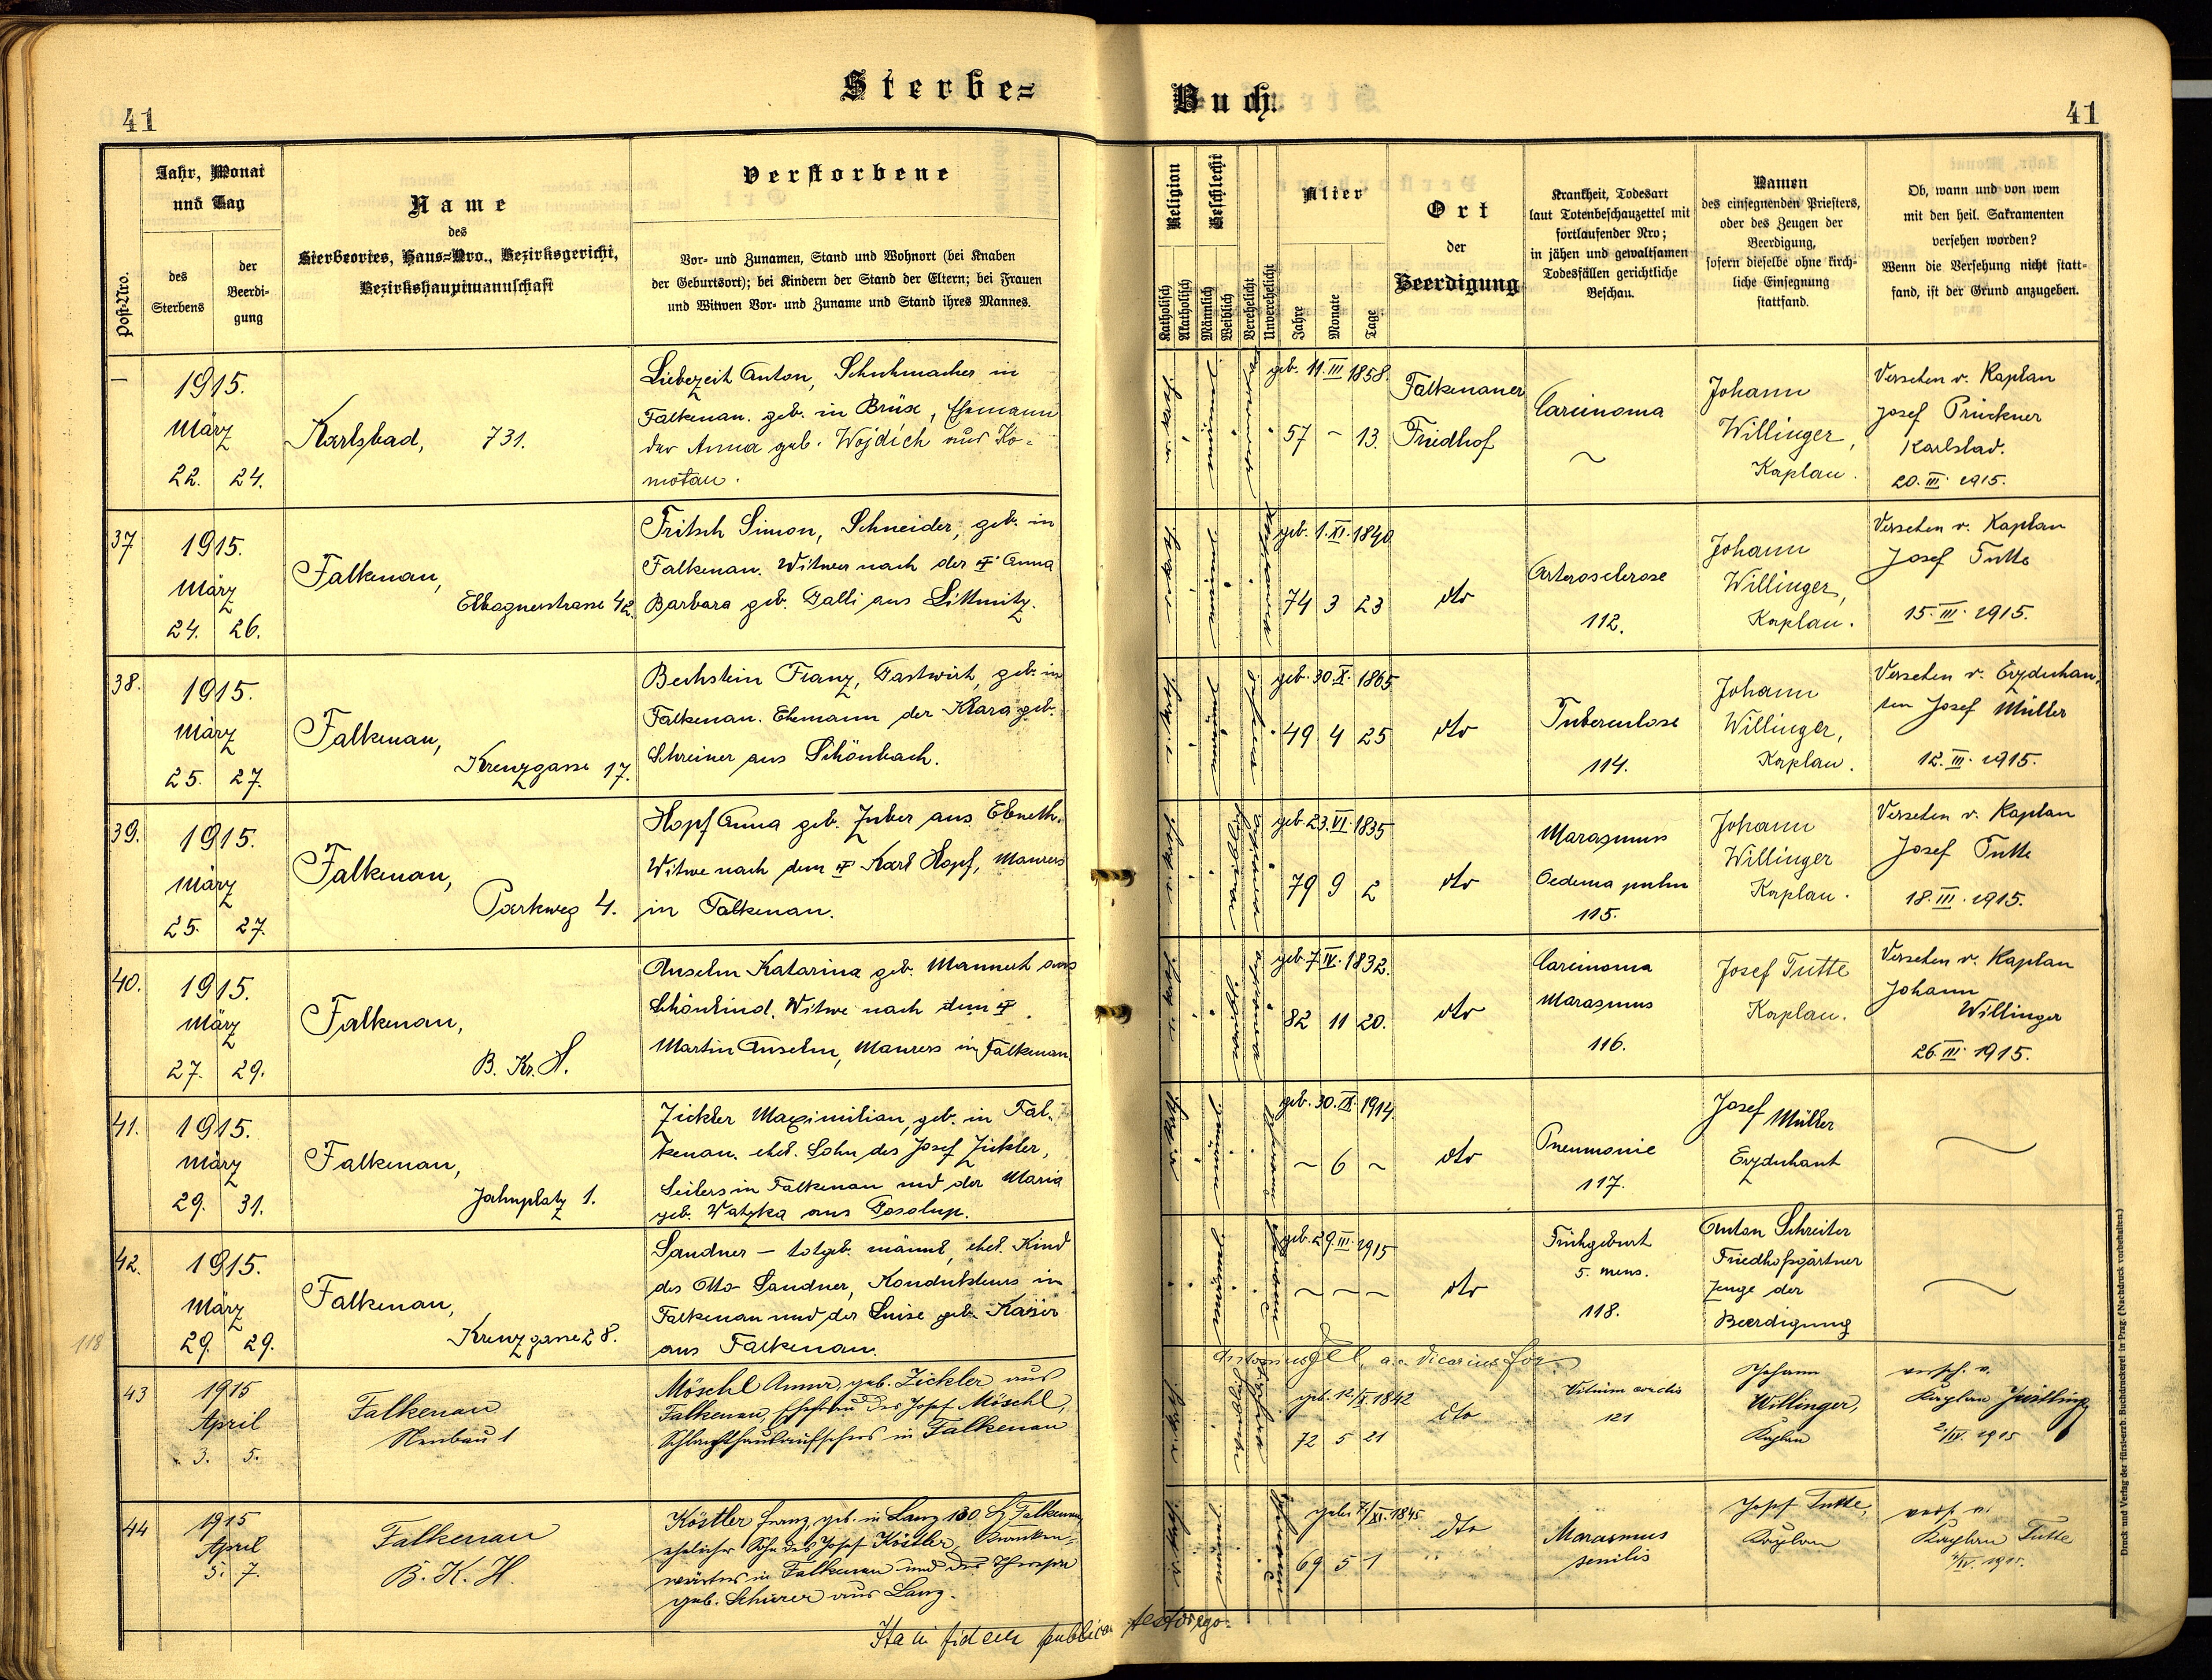 Sterbe=
Buch.
41
41
Post-Nro.
Jahr, Monat
und Tag
des
Sterbens
der
Beerdi-
gung
Name
des
Sterbeortes, Haus=Nro., Bezirksgericht,
Bezirkshauptmannschaft
Verstorbene
Vor- und Zunamen, Stand und Wohnort (bei Knaben
der Geburtsort); bei Kindern der Stand der Eltern; bei Frauen
und Witwen Vor- und Zuname und Stand ihres Mannes.
Religion
Katholisch
Akatholisch
Geschlecht
Männlich
Weiblich
Verehelicht
Unverehelicht
Alter
Jahre
Monate
Tage
Ort
der
Beerdigung
Krankheit, Todesart
laut Totenbeschauzettel mit
fortlaufender Nro;
in jähen und gewaltsamen
Todesfällen gerichtliche
Beschau.
Namen
des einsegnenden Priesters,
oder des Zeugen der
Beerdigung,
sofern dieselbe ohne kirch-
liche Einsegnung
stattfand.
Ob, wann und von wem
mit den heil. Sakramenten
versehen worden?
Wenn die Versehung nicht statt-
fand, ist der Grund anzugeben.
—
1915.
März
22. 24.
Karlsbad, 731.
Liebezeit Anton, Schuhmacher in
Falkenau. geb. in Brüx, Ehemann
der Anna geb. Wojdich aus Ko-
motau.
geb. 11 III 1858.
57 - 13.
Falkenauer
Friedhof
Carcinoma
~
Johann
Willinger,
Kaplan.
Versehen v. Kaplan
Josef Prückner
Karlsbad.
20. III. 1915.
37
1915.
März
24. 26.
Falkenau,
Elbognerstrasse 42.
Fritsch Simon, Schneider, geb. in
Falkenau. Witwer nach der † Anna
Barbara geb. Galli aus Littmitz.
geb. 1. XI. 1840.
74 3 23
dto
Arterosclerose
112.
Johann
Willinger,
Kaplan.
Versehen v. Kaplan
Josef Tutte
15. III. 1915.
38.
1915.
März
25. 27.
Falkenau,
Kreuzgasse 17.
Bechstein Franz, Gastwirt, geb. in
Falkenau. Ehemann der Klara geb.
Schreiner aus Schönbach.
geb. 30. X. 1865
49 4 25
dto
Tuberculose
114.
Johann
Willinger,
Kaplan.
Versehen v. Erzdechan-
ten Josef Müller
12. III. 1915.
39.
1915.
März
25. 27.
Falkenau,
Parkweg 4.
Hopf Anna geb. Zuber aus Ebmeth.
Witwe nach dem † Karl Hopf, Maurers
in Falkenau.
geb. 23. VI. 1835
79 9 2
dto
Marasmus
Oedema pulm
115.
Johann
Willinger
Kaplan.
Versehen v. Kaplan
Josef Tutte
18. III. 1915.
40.
1915.
März
27. 29.
Falkenau,
B. Kr. H.
Anselm Katarina geb. Mannert aus
Schönlind. Witwe nach dem †
Martin Anselm, Maurers in Falkenau
geb. 7 IV. 1832.
82 11 20.
dto
Carcinoma
Marasmus
116.
Josef Tutte
Kaplan.
Versehen v. Kaplan
Johann
Willinger
26. III. 1915.
41.
1915.
März
29. 31.
Falkenau,
Jahnplatz 1.
Zickler Maximilian, geb. in Fal-
kenau. ehel. Sohn des Josef Zickler,
Seilers in Falkenau und der Maria
geb. Watzka aus
geb. 30. IX. 1914.
~ 6 ~
dto
Pneumonie
117.
Josef Müller
Erzdechant
42.
1915.
März
29. 29.
Falkenau,
Kreuzgasse 28.
Sandner – totgeb. männl. ehel. Kind
des Otto Sandner, Kondukteurs in
Falkenau und der Luise geb. Kaiser
aus Falkenau.
geb. 29. III. 1915
~ ~ ~
dto
Frühgeburt
5. mens.
118.
Anton Schreiter
Friedhofsgärtner
Zeuge der
Beerdigung
118
43
1915
April
3. 5.
Falkenau
Neubau 1
Möschl Anna, geb. Zickler aus
Falkenau, Ehefrau des Josef Möschl,
Schlachthausaufsehers in Falkenau
Antonius a. Vicarius for.
geb. 12/X. 1842
72 5 21
dto
Vitium cordis
121
Johann
Willinger,
Kaplan
versch. v.
Kaplan Willinger
2/IV. 1915
44
1915
April
5. 7.
Falkenau
B. K. H.
Köstler Franz, geb. in Lanz 130 Falkenau,
ehelicher Sohn des Josef Köstler, Kranken-
wärters in Falkenau und der Theresia
geb. Schürer aus Lanz.
geb. 7/XI. 1845
69 5 1
dto
Marasmus
senilis
Josef Tutte,
Kaplan
versh. v.
Kaplan Tutte
Ita in fidem publicam testor ego:
Druck und Verlag der fürsterzb. Buchdruckerei in Prag. (Nachdruck vorbehalten.)